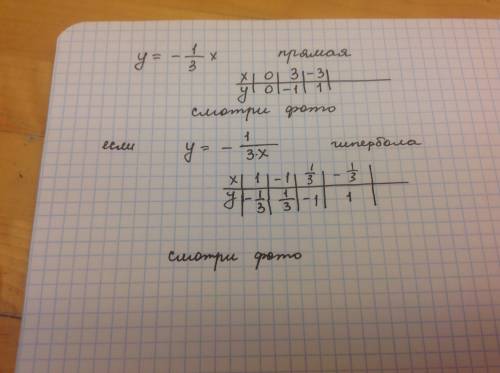 y = - 1/3 x прямая
x | 0 | 3 | -3 |
y | 0 | -1 | 1 |
смотри фото
если y = - 1/(3·x) гипербола
x | 1 | -1 | 1/3 | - 1/3 |
y | - 1/3 | 1/3 | -1 | 1 |
смотри фото